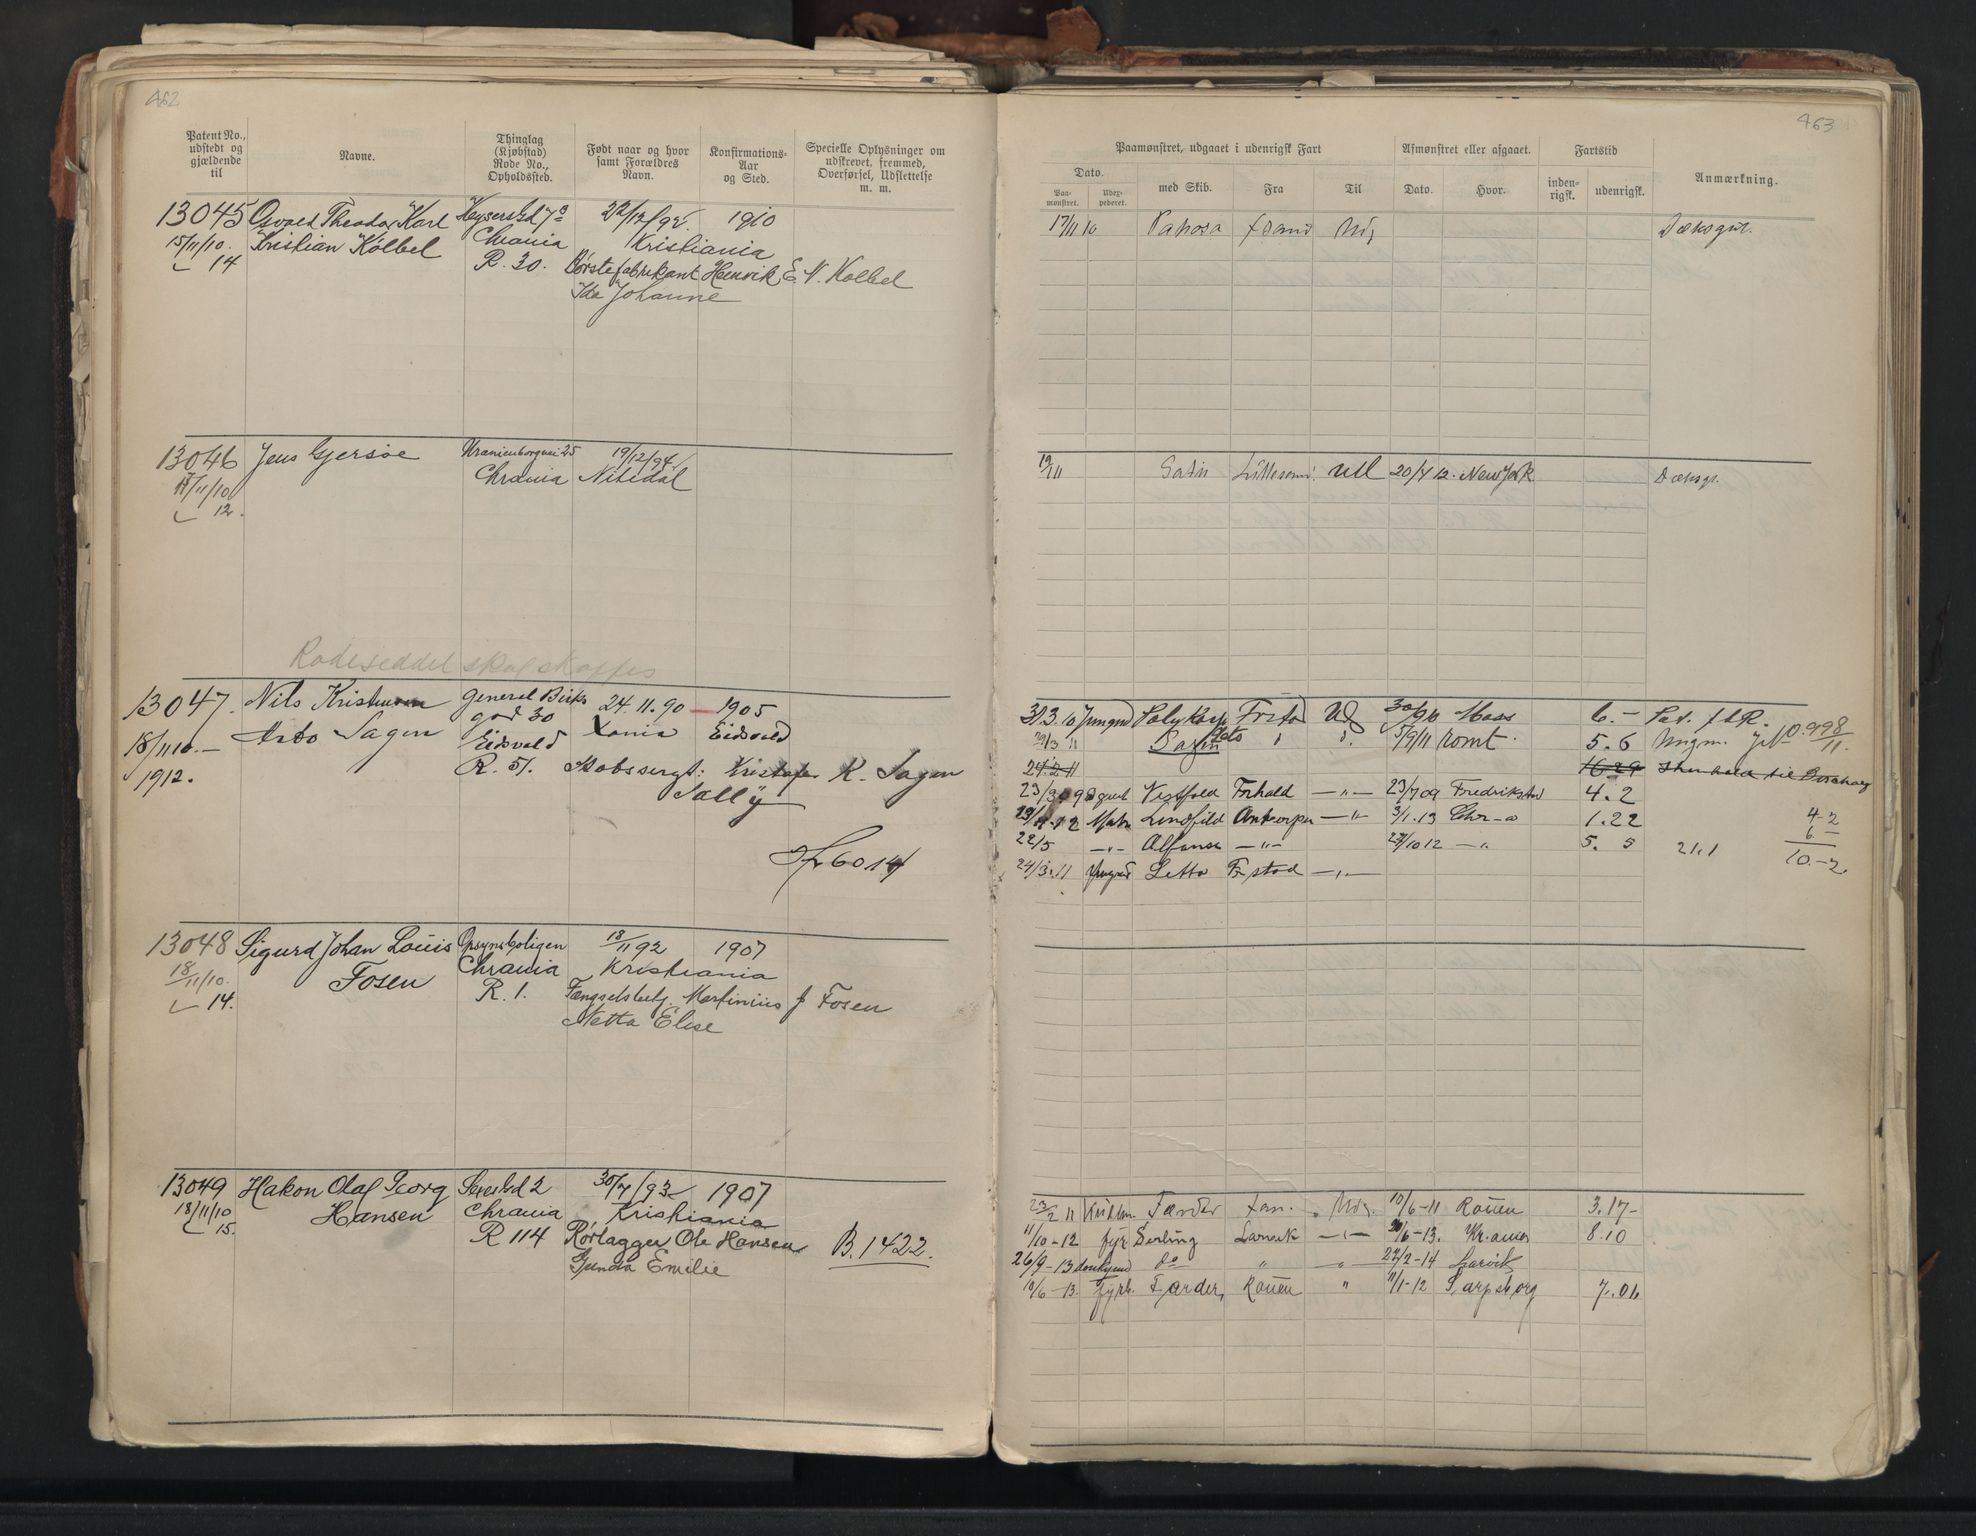 462
Patent No., udstedt og gjældende til
Navne.
Thinglag (Kjøbstad) Rode No., Opholdsted.
Født naar og hvor samt Forældres Navn.
Konfirmations-Aar og Sted.
Specielle Oplysninger om udskrevet, fremmed, Overførsel, Udslettelse m. m.
13045 Osvald Theodor Karl Keysersgd 7 1910
15/11/10. Kristian Kølbel Chrania Kristiania
14 R. 30. Børstefabrikant Henrik E. N. Kølbel
Ida Johanne
13046 Jens Gjersøe Uranienborgvei 25 19/12/94
/11/10 Chrania Nitedal
12.
Rodeseddel skal skaffes
13047. Nils General Birks 24.11.90 — 1905
gad 30
18/11 10. Sagen Eidsvold Xania Eidsvold
1912. R. 51. Stabssergt: Kristofer K. Sagen
Sally
60.14
13048 Sigurd Johan Louis Opsynsboligen 18/11 92 1907
18/11/10. Fosen Chrania Kristiania
14. R. 1. Fængselsbetj. Martinius J Fosen
Netta Elise
13049 Hakon Olaf Georg 2 30/7/93 1907
18/11/10 Hansen Chrania Kristiania
15. R 114 Rørlægger Ole Hansen B. 1422.
Gunda Emilie
463
Paamønstret, udgaaet i udenrigsk Fart
Afmønstret eller afgaaet.
Fartstid
Anmærkning.
Dato.
Paa-mønstret.
Udex-pederet.
med Skib.
Fra
Til
Dato.
Hvor.
inden-rigsk.
udenrigsk.
17/11 10 Ud, Dæksgut.
19/11 Ud 20/4 12. New York Dæksg.
31.3.10 Jungmd Polykarp Frstad Ud 30/9 10 Moss 6.—
29/3 11 5/9/11 tomt. 5.6 Ungm. 998/11.
24.2 11 16.29
23/3 09 Vestfold Frhald —„— 23/7 09 Fredrikstad 4.2
12 Matr Lindfild Antverpen —„— 3/1.13 Chr-a 1.22 4-2
22/5 —„— Alfonse —„— 10 12 —„ 5. 5 21.1 6—
24/3.11 Jungmd Letto Frstad —„— 10.-2.
23/2 11 Færder Ud, 10/6-11 Rouen 3.17-
11/10-12 fyr Sterling Larvik —„— /6-13. Kr.a 8.10
26/9-13 donkymd do „ „ 27/2-14 Larvik
10/6-13. fyrb. Færder, Rouen „ 11/1-12 Sarpsborg 7.01